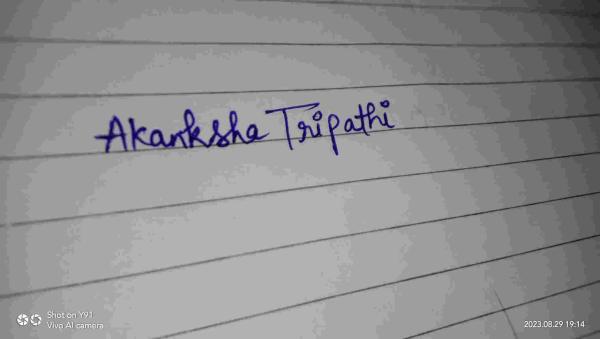 Akanksha Tripathi
Shot on Y91
Vivo AI camera
2023.08.29 19:14